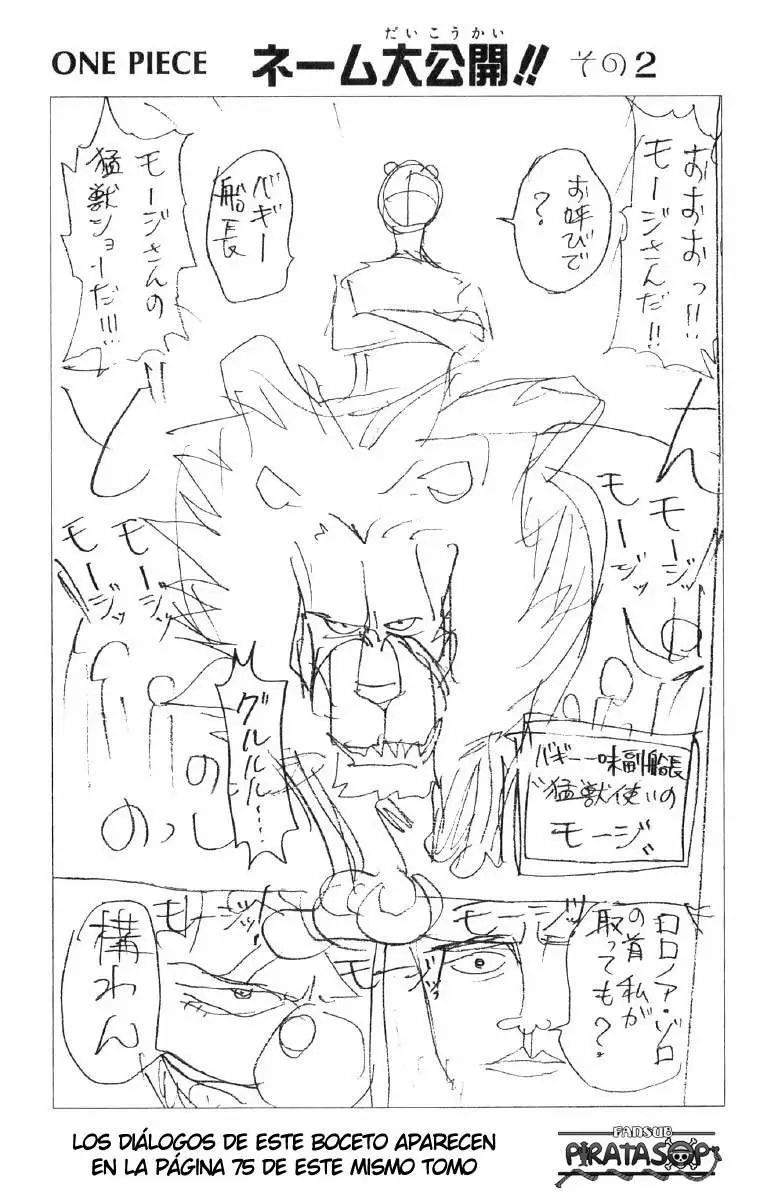 だいこうかい
ONE PIECE ネーム大公開!! その2
おおおっ!!
モージさんだ!!
お呼びで
?
バギー
船長
モージさんの
猛獣ショーだ!!!
ど
ん
!!
モージッ
モージッ
モージッ
モージッ
グルルル…
のっし
の
バギー一味副船長
"猛獣使いの
モージ"
モージッ
モージッ!
モージッ
ロロノア・ゾロ
の首私が
取っても?
構わん
LOS DIÁLOGOS DE ESTE BOCETO APARECEN
EN LA PÁGINA 75 DE ESTE MISMO TOMO
FANSUB
PIRATASOP